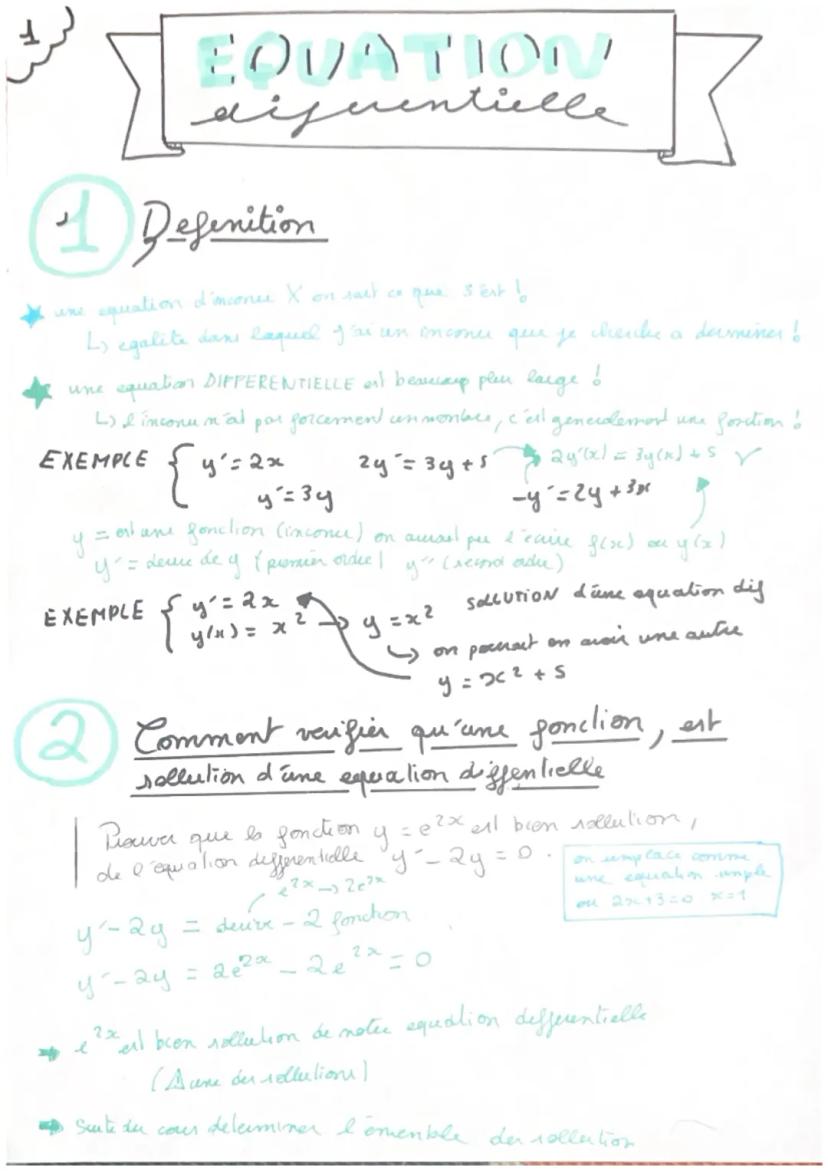 1
EQUATION
diferentielle
1 Defenition
une equation d'inconu X on sait ce que s'est !
↳ egalité dans laquel j'ai un inconu que je cherche a derminer !
une equation DIFFERENTIELLE est beaucoup plu large !
↳ l'inconu n'est pas forcement un nombre, c'est generalement une fonction !
EXEMPLE { y' = 2x 2y' = 3y + 5 → 2y'(x) = 3y(x) + 5 ✓
y' = 3y -y' = 2y + 3x
y = est une fonction (inconu) on aurait pu l'écrire f(x) ou y(x)
y' = derive de y (premier ordre) y'' (second ordre)
EXEMPLE { y' = 2x
y(x) = x² → y = x² SOLLUTION d'une equation dif
↳ on pourrait en avoir une autre
y = x² + 5
2 Comment verifier qu'une fonction, est
sollution d'une equation diffentielle
Prouver que la fonction y = e^{2x} est bien sollution,
de l'equation differentielle y' - 2y = 0.
on remplace comme
une equation simple
ou 2x+3=0 x=1
e^{2x} → 2e^{2x}
y' - 2y = derive - 2 fonction
y' - 2y = 2e^{2x} - 2e^{2x} = 0
→ e^{2x} est bien sollution de notre equation differentielle
(⚠ une des sollutions)
→ Suite du cours determiner l'ensemble des sollution